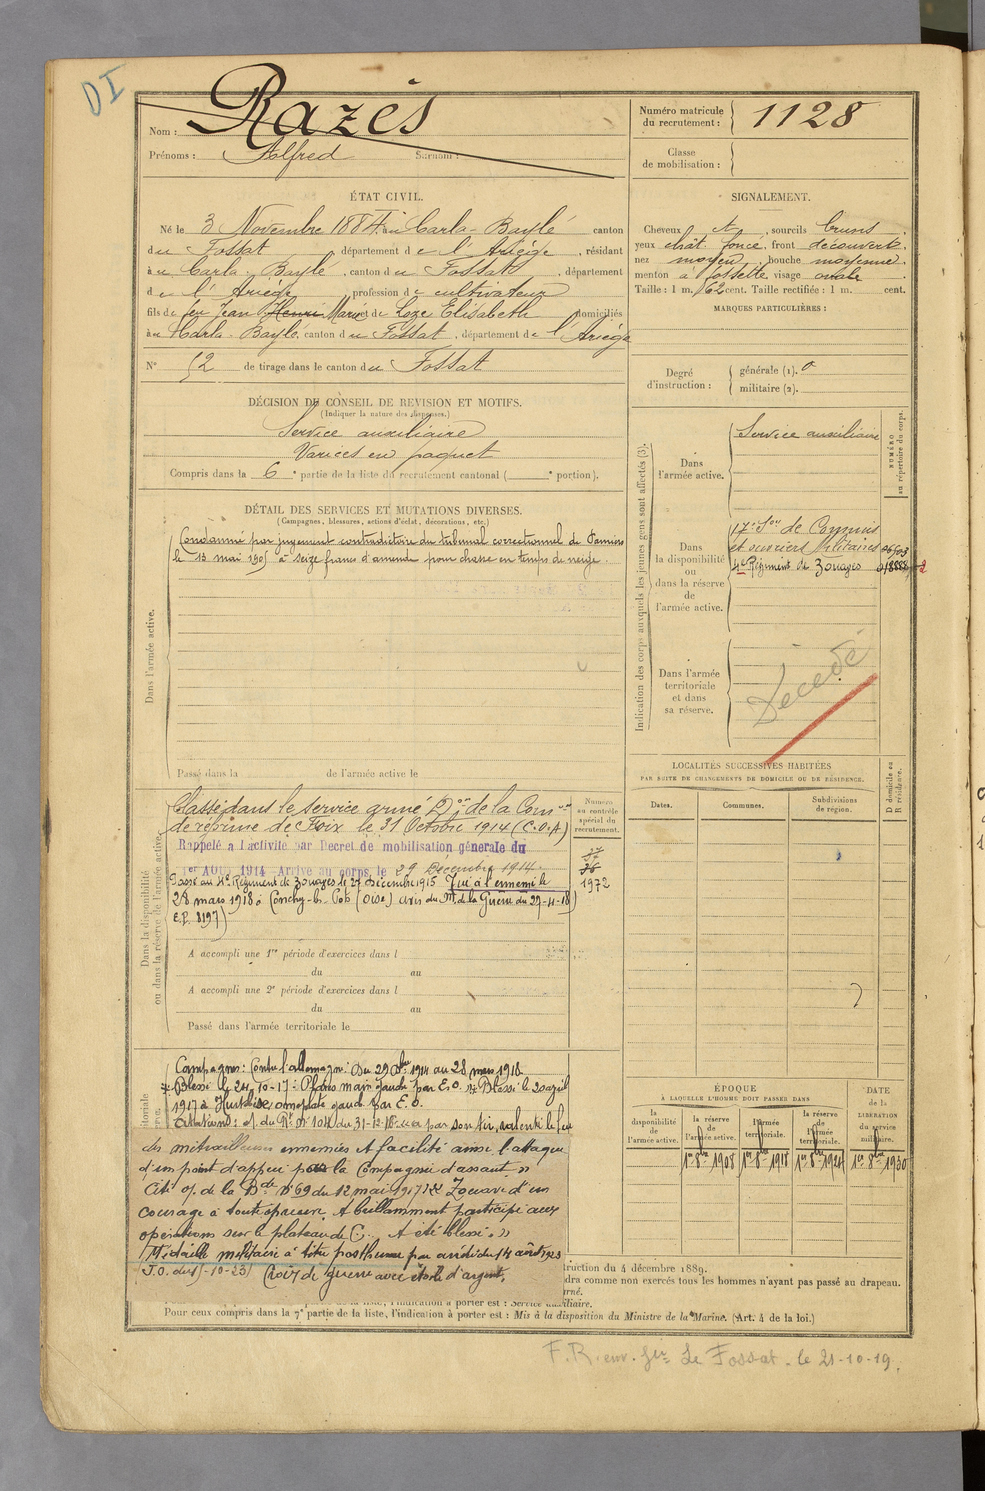 DI
Nom : Razès
Prénoms : Alfred Surnom :
Numéro matricule du recrutement : 1128
Classe de mobilisation :
ÉTAT CIVIL.
Né le 3 Novembre 1884, à u Carla-Bayle canton
d u Fossat, département d e l'Ariège, résidant
à u Carla-Bayle, canton d u Fossat, département
d e l'Ariège, profession d e cultivateur
fils de feu Jean Henri Marie et de Loze Elisabeth domiciliés
à u Carla-Bayle, canton d u Fossat, département de l'Ariège
N° 52 de tirage dans le canton d u Fossat
SIGNALEMENT.
Cheveux et, sourcils bruns
yeux chât. foncé, front découvert,
nez moyen, bouche moyenne
menton à fossette visage ovale.
Taille : 1 m. 62 cent. Taille rectifiée : 1 m. cent.
MARQUES PARTICULIÈRES :
Degré d'instruction : générale (1). 0
militaire (2).
DÉCISION DU CONSEIL DE REVISION ET MOTIFS.
(Indiquer la nature des dispenses.)
Service auxiliaire
Varices en paquet
Compris dans la 6e partie de la liste du recrutement cantonal ( e portion).
DÉTAIL DES SERVICES ET MUTATIONS DIVERSES.
(Campagnes, blessures, actions d'éclat, décorations, etc.)
Condamné par jugement contradictoire du tribunal correctionnel de Pamiers
le 13 mai 1905 à seize francs d'amende pour chasse en temps de neige.
Dans l'armée active.
Passé dans la de l'armée active le
Indication des corps auxquels les jeunes gens sont affectés (3).
NUMÉRO au répertoire du corps.
Dans l'armée active.
Service auxiliaire
Dans la disponibilité ou dans la réserve de l'armée active.
17e Son de Commis
et ouvriers Militaires
4e Régiment de Zouaves
Dans l'armée territoriale et dans sa réserve.
Décédé
LOCALITÉS SUCCESSIVES HABITÉES
PAR SUITE DE CHANGEMENTS DE DOMICILE OU DE RÉSIDENCE.
Dates. Communes. Subdivisions de région. D domicile ou R résidence.
Dans la disponibilité ou dans la réserve de l'armée active.
Classé dans le service armé 2e de la Com on
de réforme de Foix le 31 Octobre 1914 (C.O.A)
Rappelé à l'activité par Decret de mobilisation générale du
1er AOUT 1914 Arrivé au corps le 29 Décembre 1914.
Passé au 4e Régiment de Zouaves le 27 décembre 1915 Tué à l'ennemi le
28 mars 1918 à Conchy-les-Pots (Oise) avis du M. de la Guerre du 27-4-18
E.P. 8197)
Numéro au contrôle spécial du recrutement.
1972
A accompli une 1re période d'exercices dans l
du au
A accompli une 2e période d'exercices dans l
du au
Passé dans l'armée territoriale le
Campagnes : Contre l'allemagne : du 29 Xbre 1914 au 28 mars 1918
Blessé le 24-10-17 : Plaies main gauche par E.O. Blessé le 20 avril
1917 à Hurtebise, omoplate gauche par E.O.
Citations : o. du Rt n° 104 du 31-12-16 « a par son tir, ralenti le feu
des mitrailleuses ennemies et facilité ainsi l'attaque
d'un point d'appui par la Compagnie d'assaut »
Cité o. de la Bde n° 69 du 12 mai 1917 « Zouave d'un
courage à toute épreuve. A brillamment participé aux
opérations sur le plateau de C. A été blessé. »
Médaille militaire à titre posthume par arrêté du 14 août 1923
J.O. du -10-23) Croix de guerre avec étoile d'argent,
ÉPOQUE
À LAQUELLE L'HOMME DOIT PASSER DANS
la disponibilité de l'armée active. la réserve de l'armée active. l'armée territoriale. la réserve de l'armée territoriale.
DATE de la LIBÉRATION du service militaire.
1er 8bre 1908 1er 8bre 1918 1er 8bre 1924 1er 8bre 1930
ruction du 4 décembre 1889.
dra comme non exercés tous les hommes n'ayant pas passé au drapeau.
rné.
la liste, l'indication à porter est : Service auxiliaire.
Pour ceux compris dans la 7e partie de la liste, l'indication à porter est : Mis à la disposition du Ministre de la Marine. (Art. 4 de la loi.)
F.R. env. Gie Le Fossat - le 21-10-19.